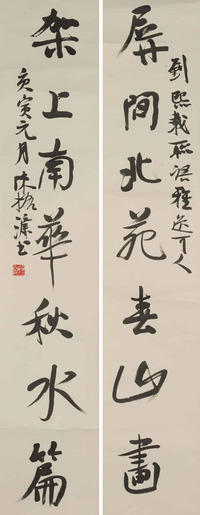 屏間北苑春山畫
劉熙載聯語雅逸可人
架上南華秋水篇
庚寅元月